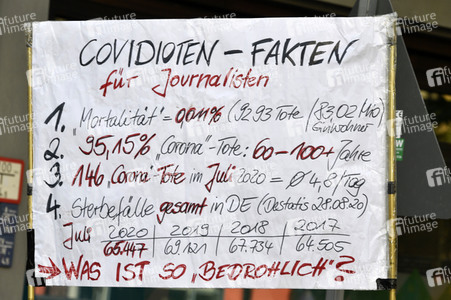 COVIDIOTEN – FAKTEN
für Journalisten
1. „Mortalität" = 0,01% (9293 Tote / 83,02 Mio) Einwohner
2. 95,15% „Corona"-Tote: 60-100+ Jahre
3. 146 „Corona"-Tote im Juli 2020 = Ø 4,8/Tag
4. Sterbefälle gesamt in DE (Destatis 28.08.20)
Juli 2020 | 2019 | 2018 | 2017
65.447 | 69.121 | 67.734 | 64.505
→ WAS IST SO „BEDROHLICH"?